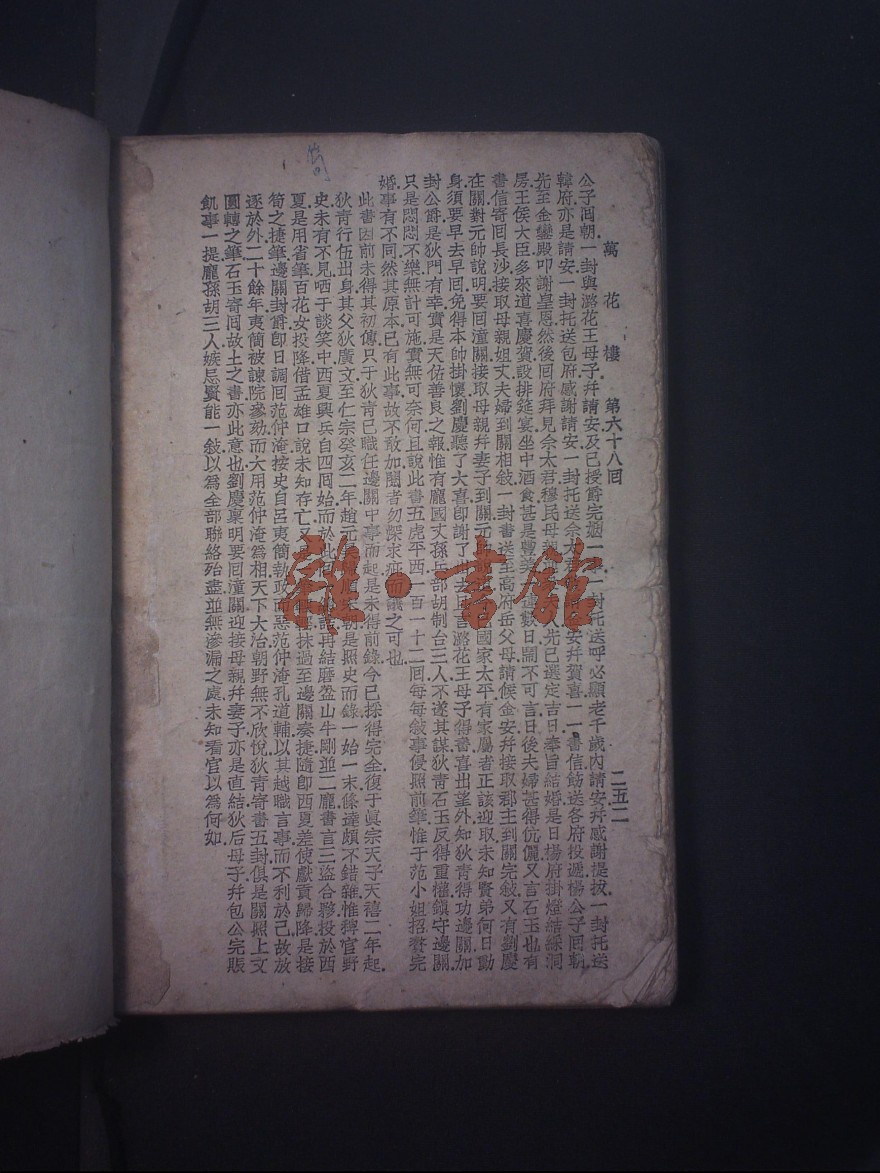 萬花樓　第六十八回　二五二
公子回朝一封與潞花王母子幷請安及已授爵完姻一一封托送呼必顯老千歲內請安幷感謝提拔一封托送
韓府亦是請安一封托送包府感謝請安一封托送佘太安幷賀喜一一書信筋送各府投遞楊公子回朝
先至金鑾殿叩謝皇恩然後回府拜見佘太君穆氏母親先已選定吉日奉旨結婚是日楊府掛燈結綵洞
房王侯大臣多來道喜慶賀設排筵宴坐中酒食甚是豐美數日鬧不可言日後夫婦甚得伉儷又言石玉也有
書信寄回長沙接取母親姐丈夫婦到關相敍一封書送至高府岳父母請候金安幷接取郡主到關完敍又有劉慶
在關對元帥說明要回潼關接取母親幷妻子到關元國家太平有家屬者正該迎取未知賢弟何日動
身須要早去早回免得本帥掛懷劉慶聽了大喜卽謝了去且言潞花王母子得書喜出望外知狄青得功邊關加
封公爵是狄門有幸實是天佑善良之報惟有龐國丈孫兵部胡制台三人不遂其謀狄青石玉反得重權鎮守邊關
只是悶悶不樂無計可施實無可奈何且說此書五虎平西一百一十二回每每敍事侵照前鋒惟于范小姐招贅完
婚事有不同然其原本已有此事故不敢加閱者勿深求疵而議之可也
此書因前未得其初傳只于狄青已職任邊關中事而起是未得前錄今已採得完全復于眞宗天子天禧二年起
狄青行伍出身其父狄廣文至仁宗癸亥二年趙元朝是照史而錄一始一末條達頗不錯雜惟稗官野
史未有不見哂于談笑中西夏興兵自四回始而於此回再結磨盤山牛剛並二龐書言三盜合夥投於西
夏是用省筆百花女投降借孟雄口說未知存亡又抹過至邊關奏捷隨卽西夏差使獻貢歸降是接
筍之捷筆邊關封爵卽日調回范仲淹按史自呂夷簡執政而惡范仲淹孔道輔以其越職言事而不利於己故放
逐於外二十餘年夷簡被諫院參劾而大用范仲淹為相天下大治朝野無不欣悅狄青寄書五封俱是關照上文
圓轉之筆石玉寄回故土之書亦此意也劉慶稟明要回潼關迎接母親幷妻子亦是直結狄后母子幷包公完賬
飢事一提龐孫胡三人嫉忌賢能一敍以為全部聯絡殆盡並無滲漏之處未知看官以為何如
雜·書館